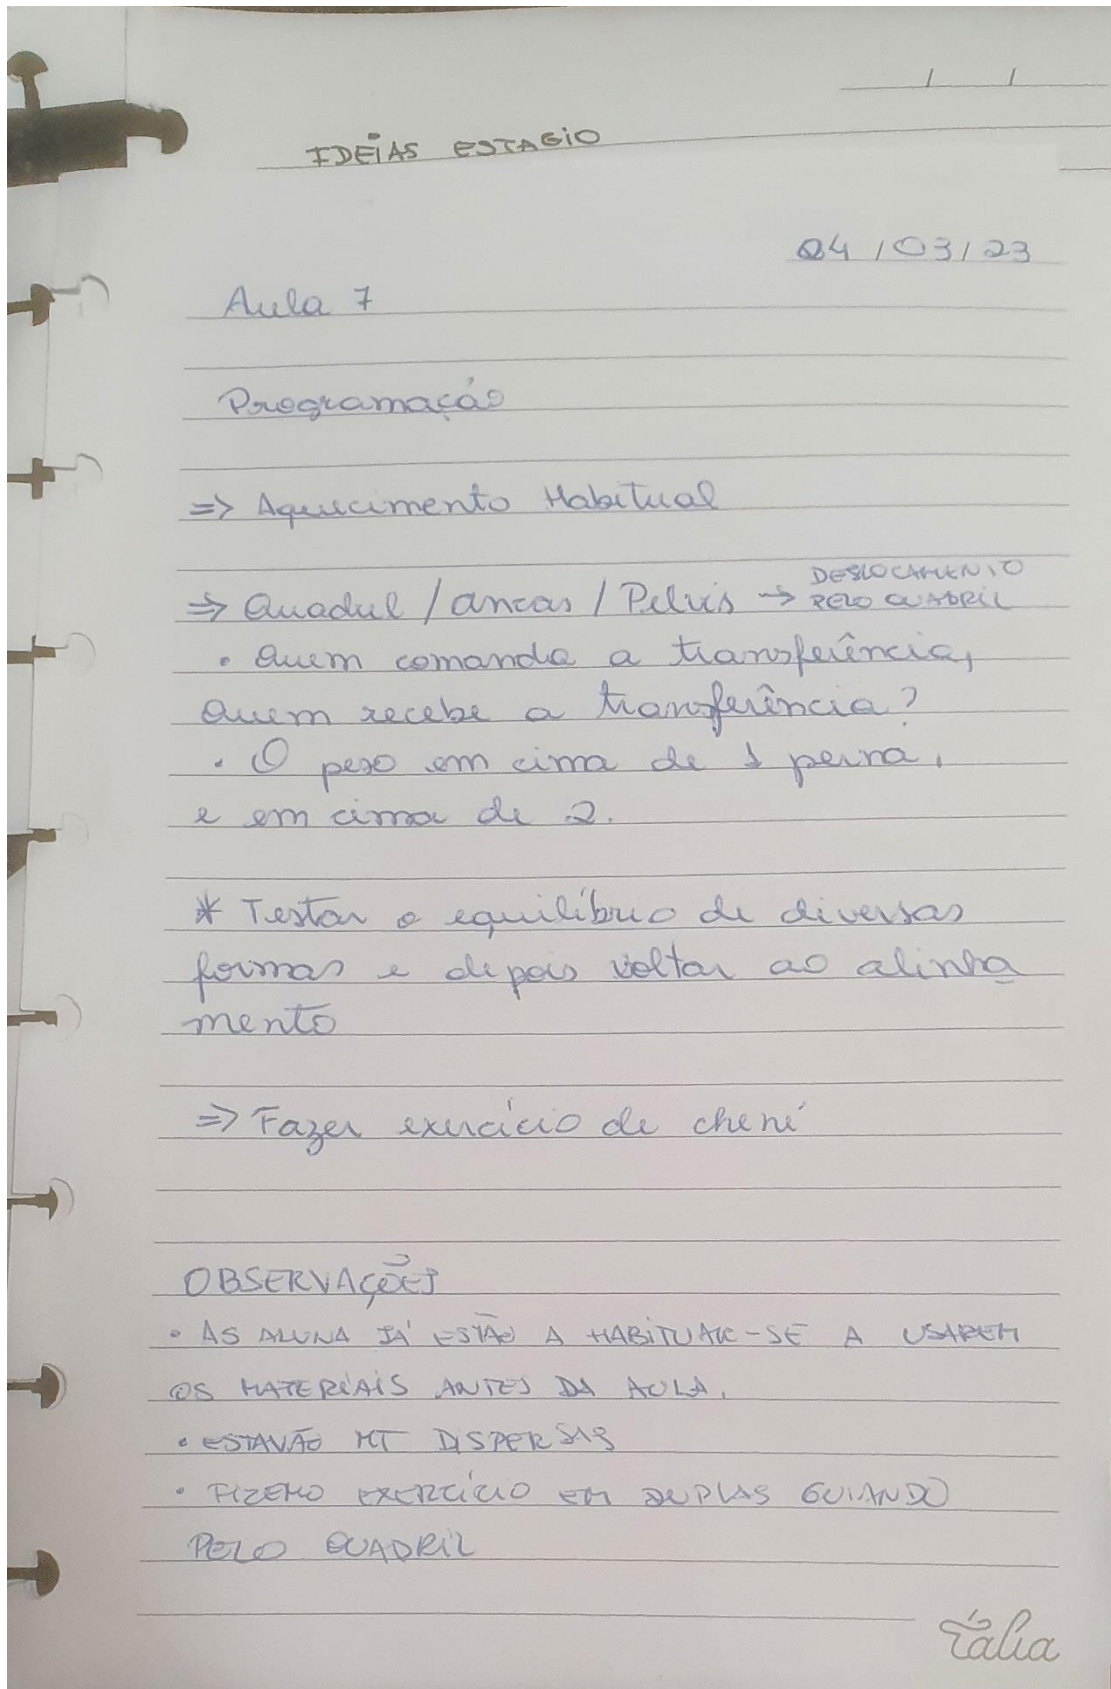 IDEIAS ESTAGIO
04/03/23
Aula 7
Programação
=> Aquecimento Habitual
=> Quadril/ancas/Pelvis → DESLOCAMENTO
PELO QUADRIL
• Quem comanda a transferência,
Quem recebe a transferência?
• O peso em cima de 1 perna,
e em cima de 2.
* Testar o equilíbrio de diversas
formas e depois voltar ao alinha
mento
=> Fazer exercício de chené
OBSERVAÇÕES
• AS ALUNA JÁ ESTÃO A HABITUAR-SE A USAREM
OS MATERIAIS ANTES DA AULA.
• ESTAVÃO MT DISPERSAS
• FIZEMO EXERCÍCIO EM DUPLAS GUIANDO
PELO QUADRIL
Talia